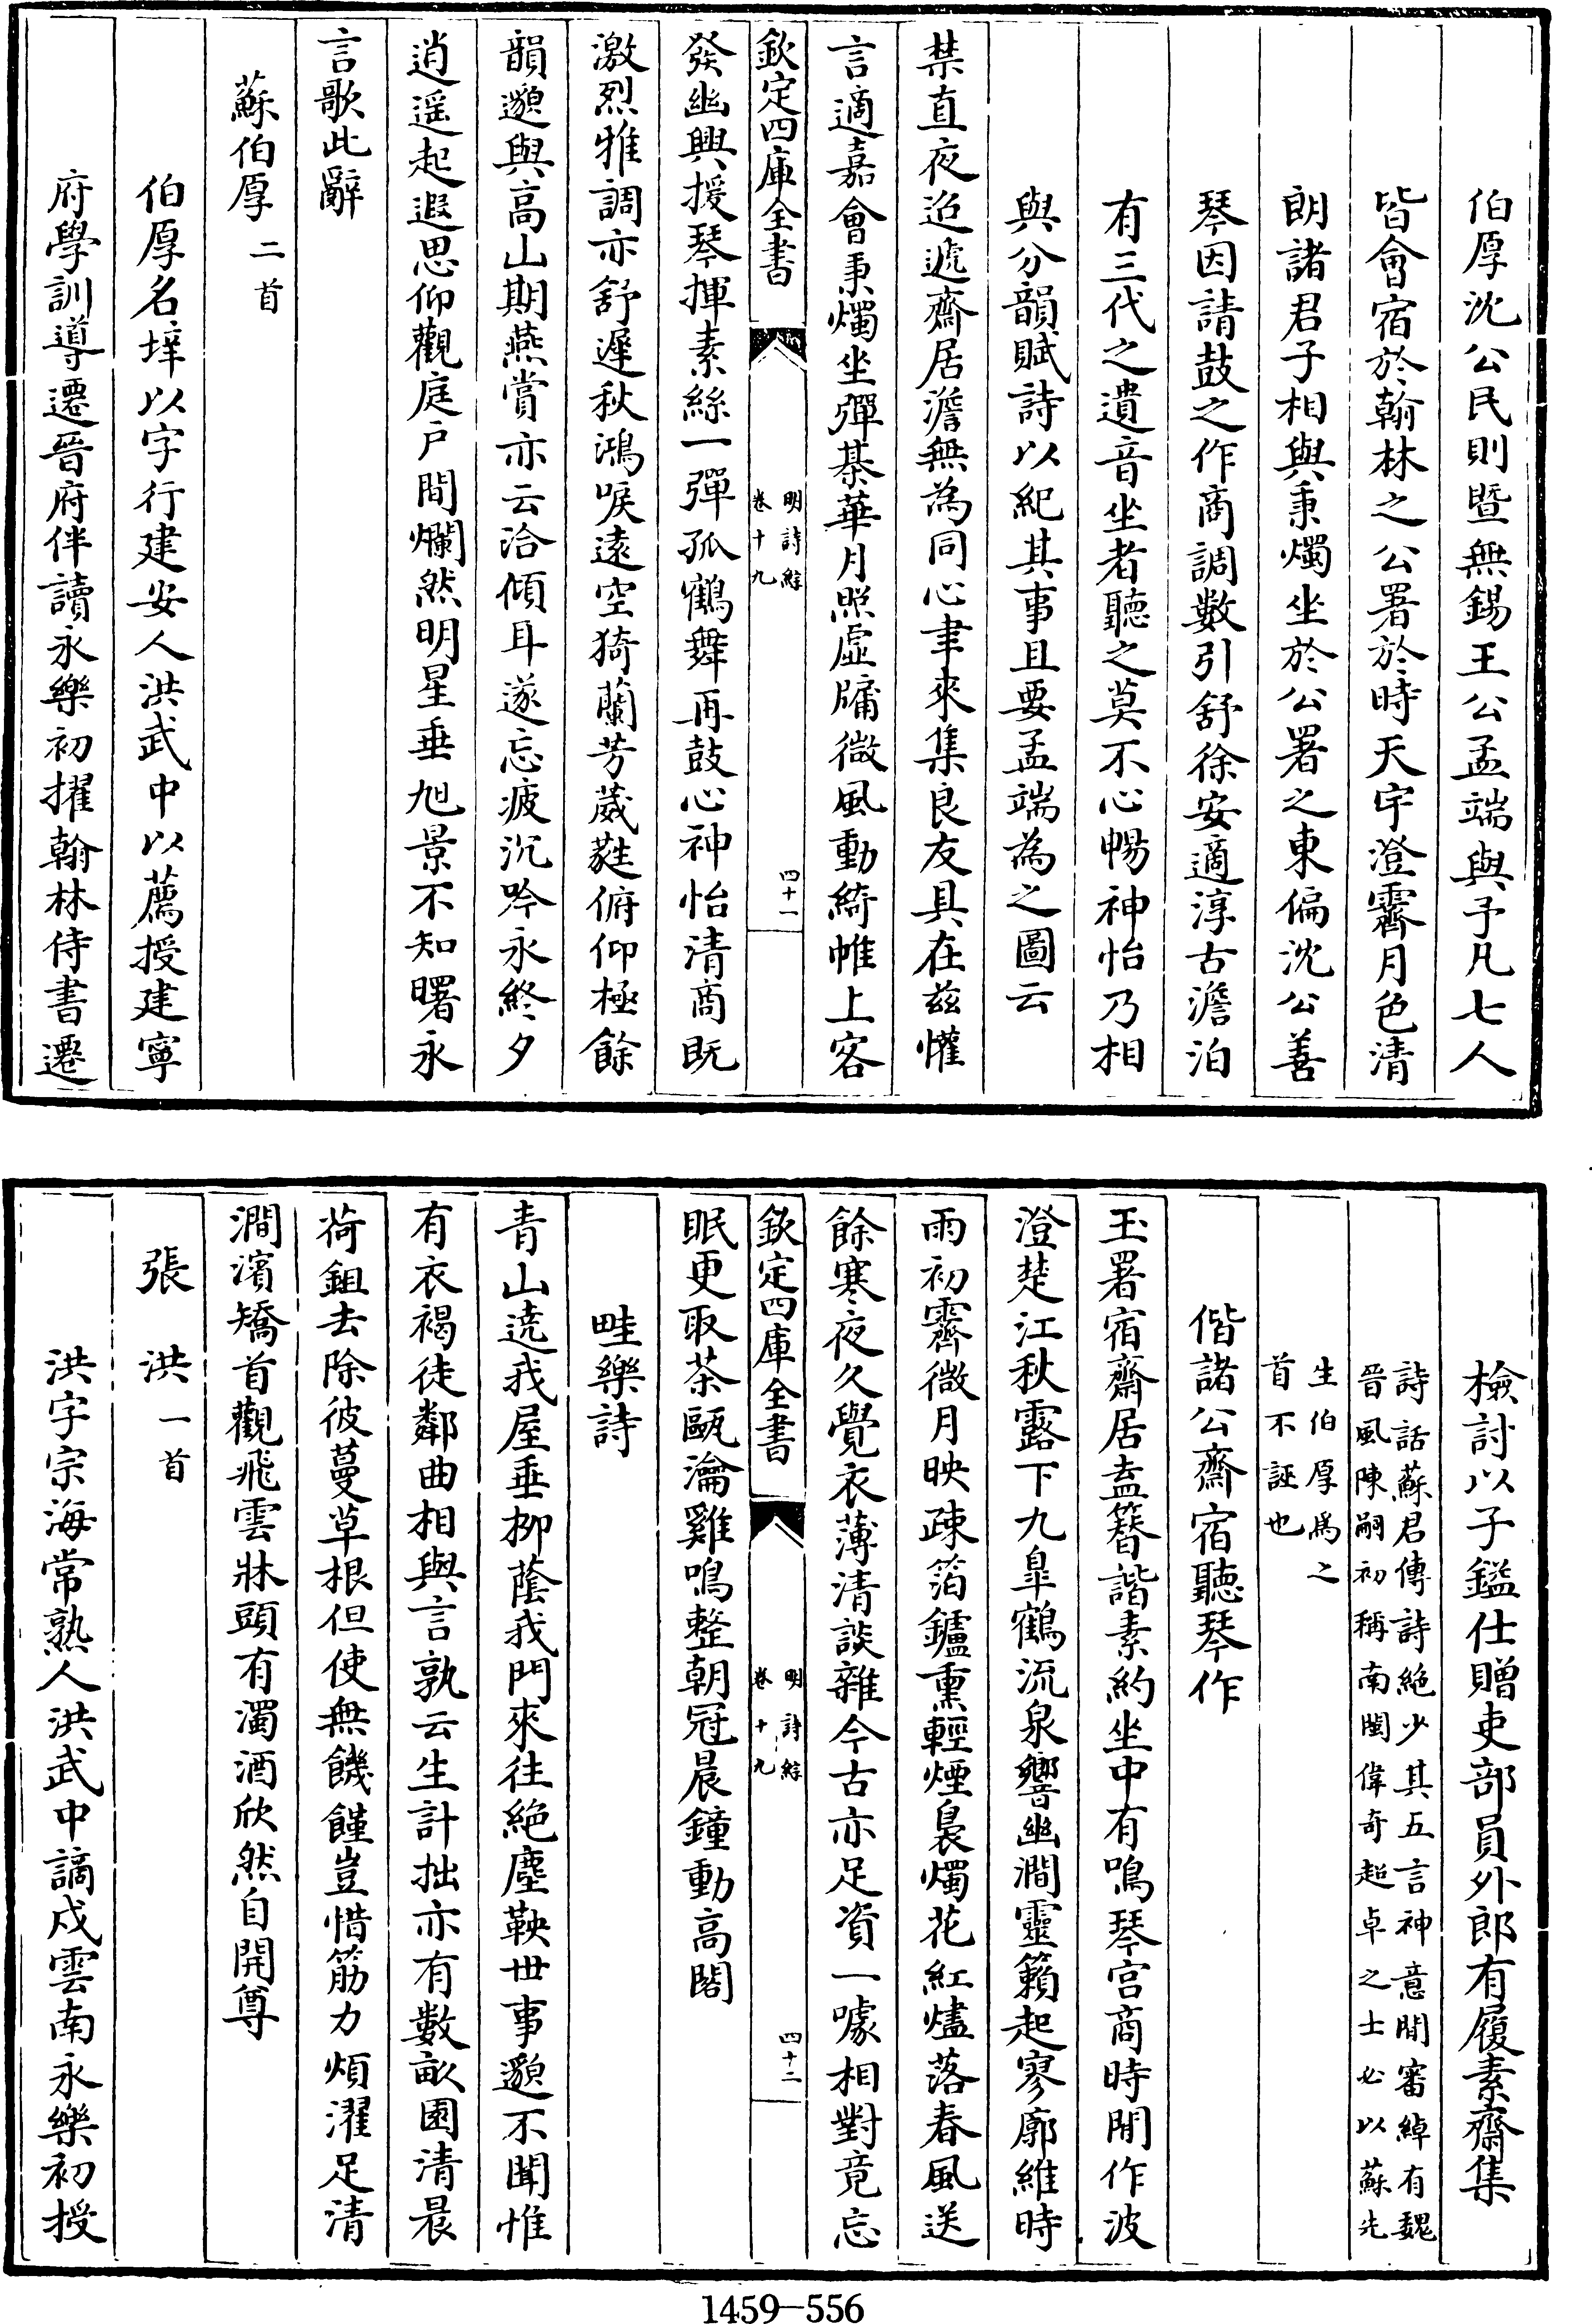 伯厚沈公民則暨無錫王公孟端與予凡七人
皆會宿於翰林之公署於時天宇澄霽月色清
朗諸君子相與秉燭坐於公署之東偏沈公善
琴因請鼓之作商調數引舒徐安適淳古澹泊
有三代之遺音坐者聽之莫不心暢神怡乃相
與分韻賦詩以紀其事且要孟端為之圖云
禁直夜迢遞齋居澹無為同心聿來集良友具在兹懽
言適嘉會秉燭坐彈棊華月照虛牖微風動綺帷上客
欽定四庫全書
明詩綜
卷十九
四十一
發幽興援琴揮素絲一彈孤鶴舞再鼓心神怡清商既
激烈雅調亦舒遲秋鴻唳遠空猗蘭芳葳蕤俯仰極餘
韻邈與高山期燕賞亦云洽傾耳遂忘疲沉吟永終夕
逍遥起遐思仰觀庭戸間爛然明星垂旭景不知曙永
言歌此辭
蘇伯厚二首
伯厚名㘸以字行建安人洪武中以薦授建寧
府學訓導遷晉府伴讀永樂初擢翰林侍書遷
檢討以子鎰仕贈吏部員外郎有履素齋集
詩話蘇君傳詩絶少其五言神意閒審綽有魏
晉風陳嗣初稱南閩偉奇超卓之士必以蘇先
生伯厚爲之
首不誣也
偕諸公齋宿聽琴作
玉署宿齋居盍簪諧素約坐中有鳴琴宫商時間作波
澄楚江秋露下九臯鶴流泉響幽澗靈籟起寥廓維時
雨初霽微月映疎箔鑪熏輕煙裊燭花紅燼落春風送
餘寒夜久覺衣薄清談雜今古亦足資一噱相對竟忘
欽定四庫全書
明詩綜
卷十九
四十二
眠更取茶甌瀹雞鳴整朝冠晨鐘動高閣
畦樂詩
青山遶我屋垂栁蔭我門來往絶塵鞅世事邈不聞惟
有衣褐徒鄰曲相與言孰云生計拙亦有數畝園清晨
荷鉏去除彼蔓草根但使無饑饉豈惜筋力煩濯足清
澗濱矯首觀飛雲牀頭有濁酒欣然自開尊
張洪一首
洪字宗海常熟人洪武中謫戍雲南永樂初授
1459—556